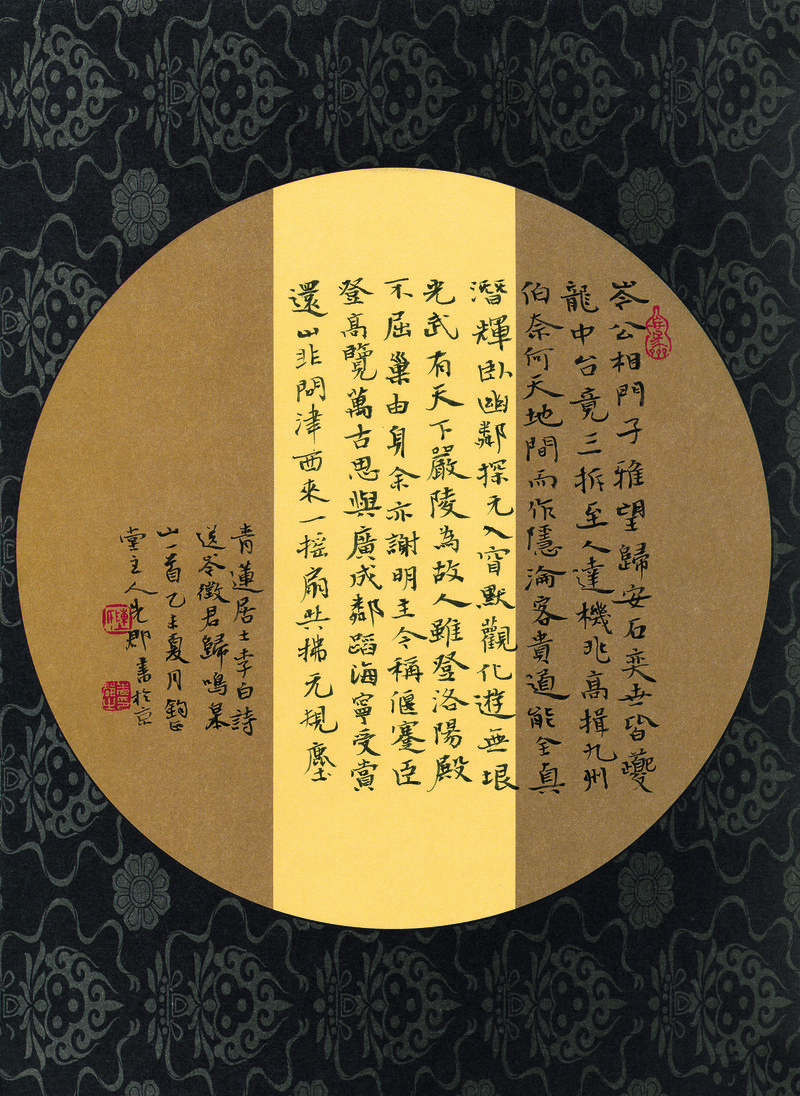 岑公相門子雅望歸安石奕世皆夔
龍中台竟三拆至人達機兆高揖九州
伯奈何天地間而作隱淪客貴道能全真
潛輝臥幽鄰探元入窅默觀化遊無垠
光武有天下嚴陵為故人雖登洛陽殿
不屈巢由身余亦謝明主今稱偃蹇臣
登高覽萬古思與廣成鄰蹈海寧受賞
還山非問津西來一搖扇共拂元規塵
青蓮居士李白詩
送岑徵君歸鳴皋
山一首乙未夏月
堂主人書於京